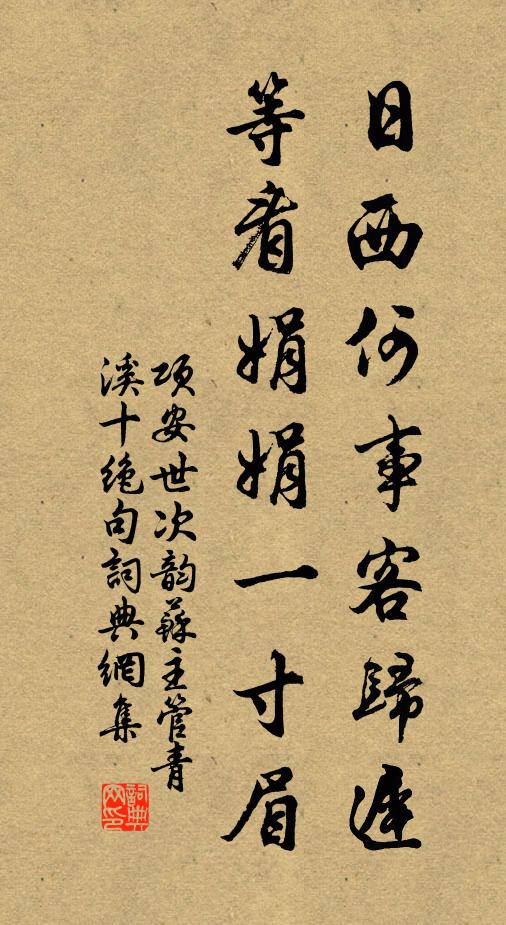 日西何事客歸遲
等看娟娟一寸眉
項安世次韵蘇主管青
溪十絶句詞典網集
詞典网印